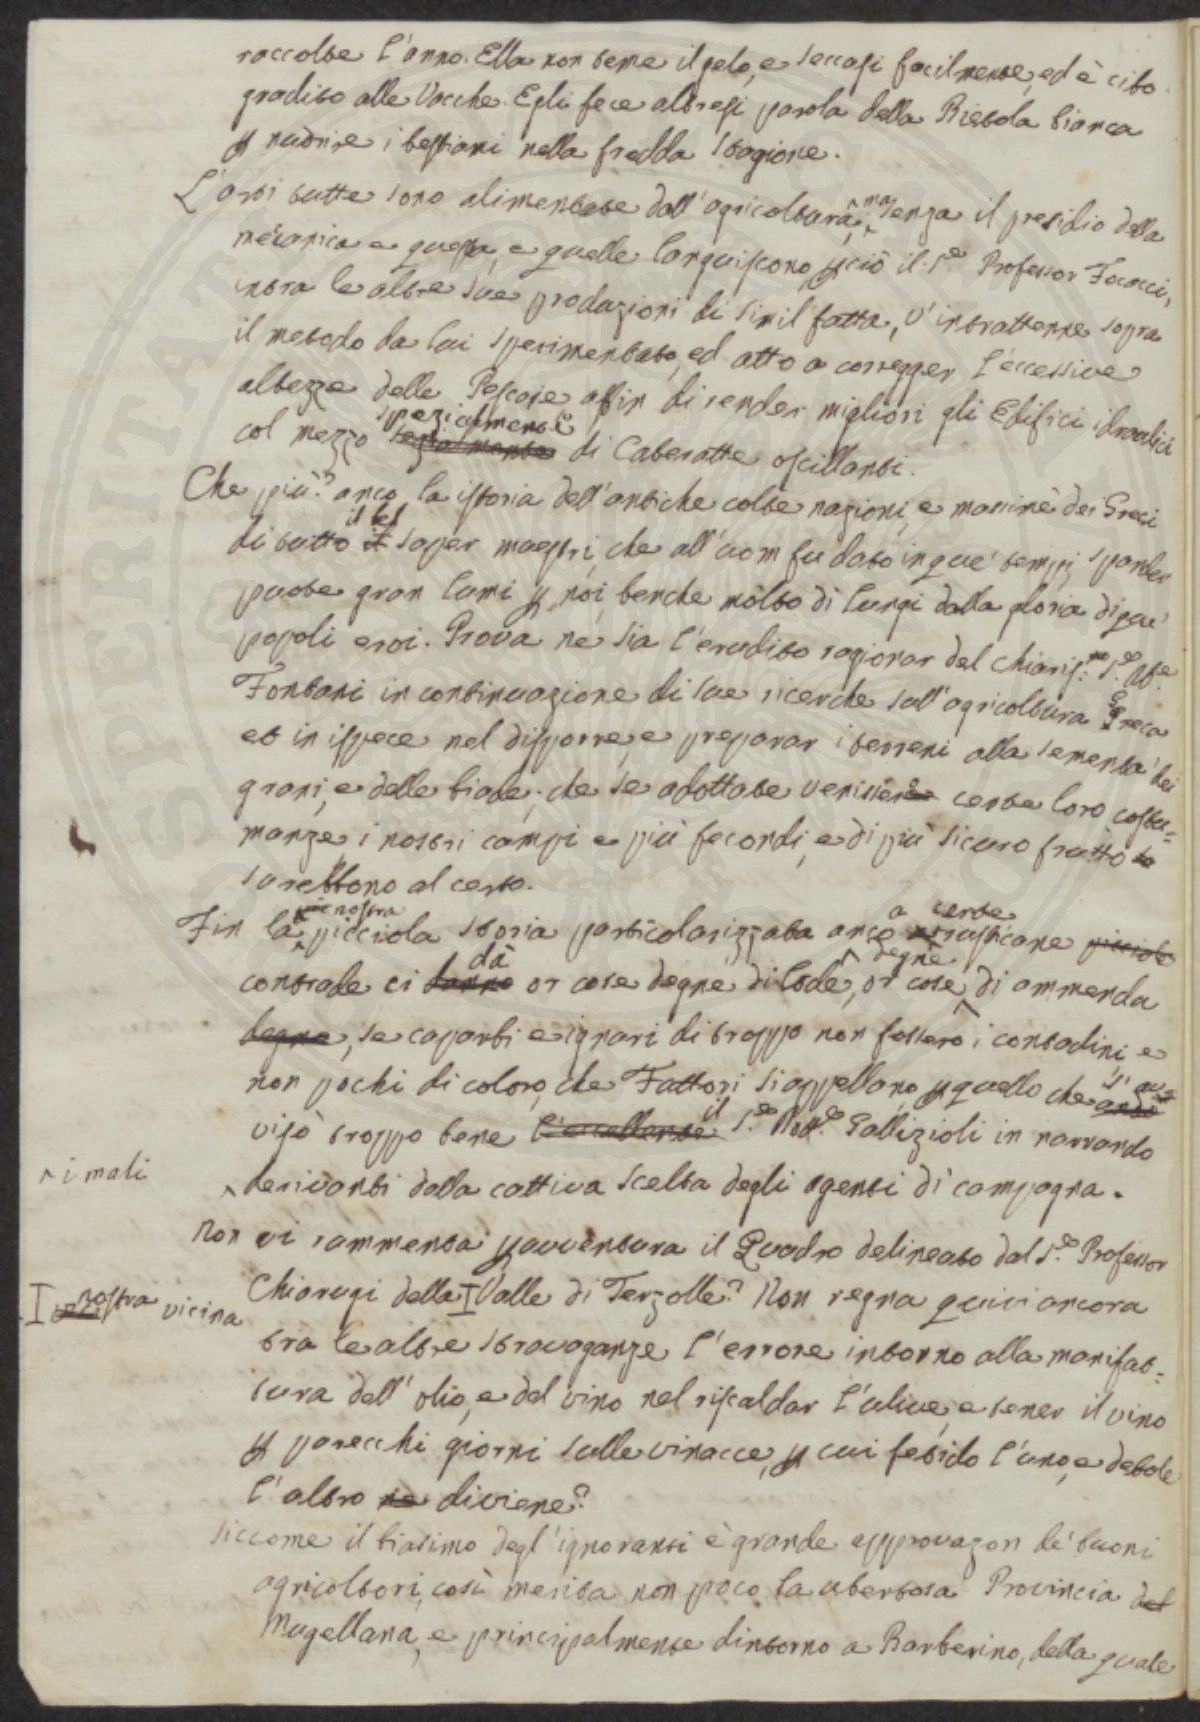 raccolte l'anno. Ella non teme il gelo, e seccasi facilmente, ed è cibo
gradito alle Vacche. Egli fece altresì parola della Bietola bianca
p nudrire i bestiami nella fredda stagione.
L'arti tutte sono alimentate dall'agricoltura, ma senza il presidio della
mecanica e questa, e quelle languiscono, pciò il S.e Professor Focacci,
intra le altre sue produzioni di simil fatta, v'intrattenne sopra
il metodo da lui sperimentato, ed atto a corregger l'eccessive
altezze delle Pescaie affin di render migliori gli Edifici idraulici
col mezzo spezialmente di Cateratte oscillanti.
Che più? anco la istoria dell'antiche colte nazioni, e massime dei Greci
di tutto il bel saper maestri, che all'uom fu dato in que' tempi, spander
puote gran lumi p noi, benche molto di lungi dalla gloria di que'
popoli eroi. Prova ne sia l'erudito ragionar del Chiaris.mo S.e Ab.e
Fontani in continuazione di sue ricerche sull'agricoltura Greca
et in ispece nel disporre, e preparar i terreni alla sementa dei
grani, e delle biade; che se adottate venisser certe loro costu=
manze i nostri campi e più fecondi, e di più sicuro frutto
sarebbono al certo.
Fin la nostra picciola storia particolarizzata anco a certe rusticane
contrade ci dà or cose degne di lode, or cose degne di ammenda
degne, se caparbi e ignari di troppo non fossero i contadini, e
non pochi di coloro, che Fattori si appellano, p quello che s'av=
visò troppo bene il S.e Dott.e Gallizioli in narrando
^ i mali
^ derivanti dalla cattiva scelta degli agenti di campagna.
Non vi rammenta pavventura il Quadro delineato dal S.e Professor
I nostra vicina
Chiarugi della I Valle di Terzolle? Non regna quivi ancora
tra le altre stravaganze l'errore intorno alla manifat=
tura dell'olio, e del vino nel riscaldar l'ulive, e tener il vino
p parecchi giorni sulle vinacce, p cui fetido l'uno, e debole
l'altro ne diviene?
Siccome il biasimo degl'ignoranti è grande approvazon de' buoni
agricoltori, così merita non poco la ubertosa Provincia del
Mugellana, e principalmente dintorno a Barberino, della quale